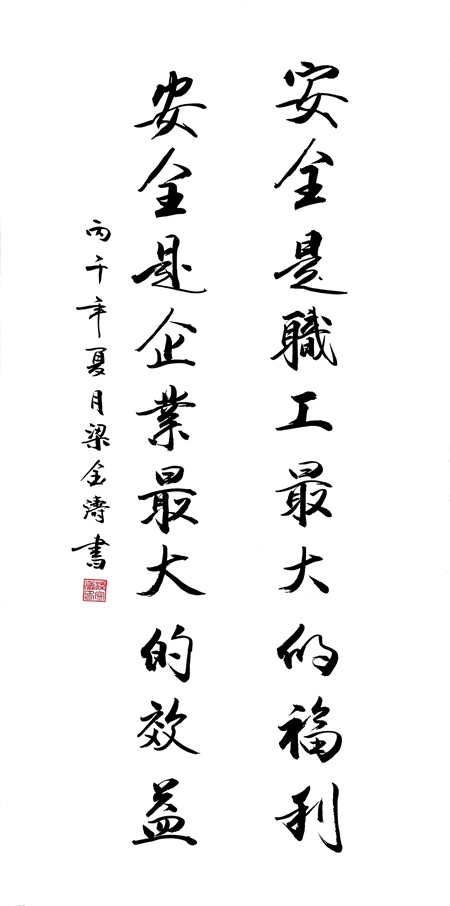 安全是職工最大的福利
安全是企業最大的效益
丙午年夏月梁金濤書